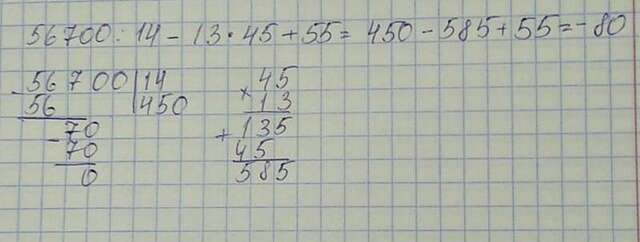 56700 : 14 - 13 · 45 + 55 = 450 - 585 + 55 = - 80
- 56700 | 14
56 | 450
- 70
70
0
× 45
13
+ 135
45
585